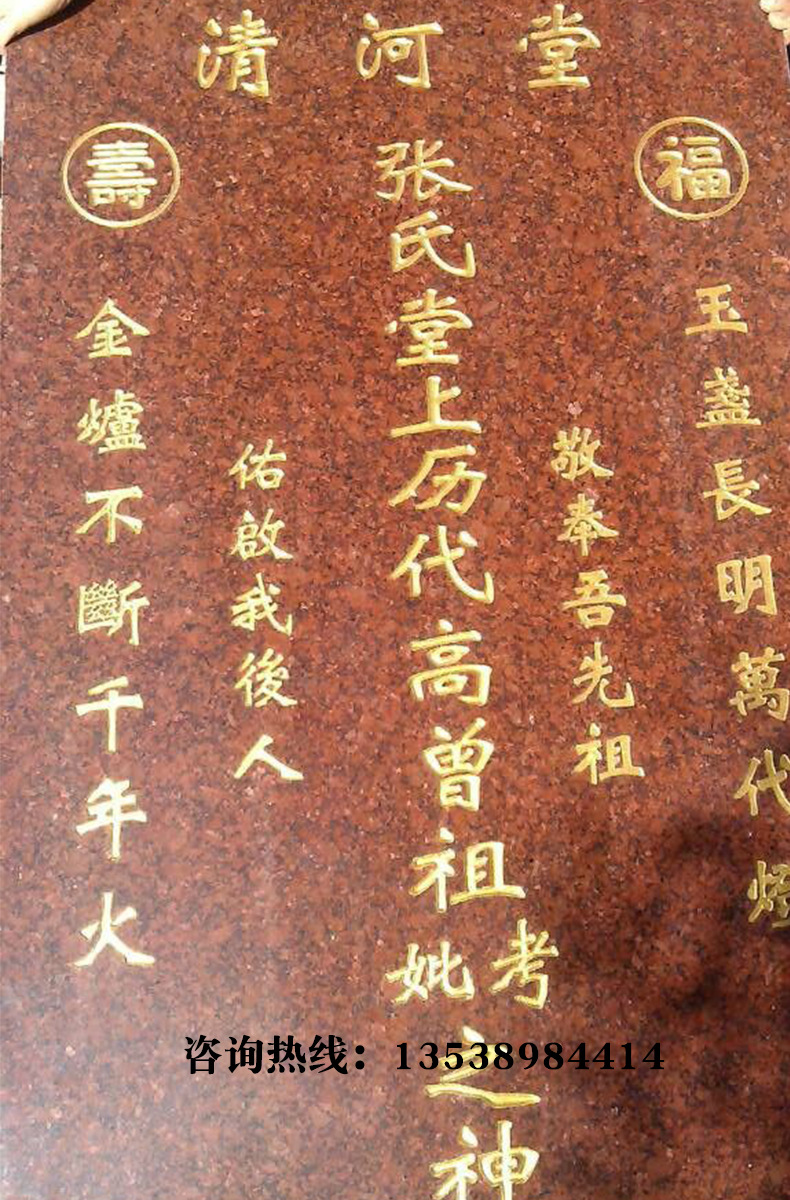 清河堂
福
玉盞長明萬代燈
敬奉吾先祖
张氏堂上历代高曾祖考妣之神
佑啟我後人
壽
金爐不斷千年火
咨询热线：13538984414